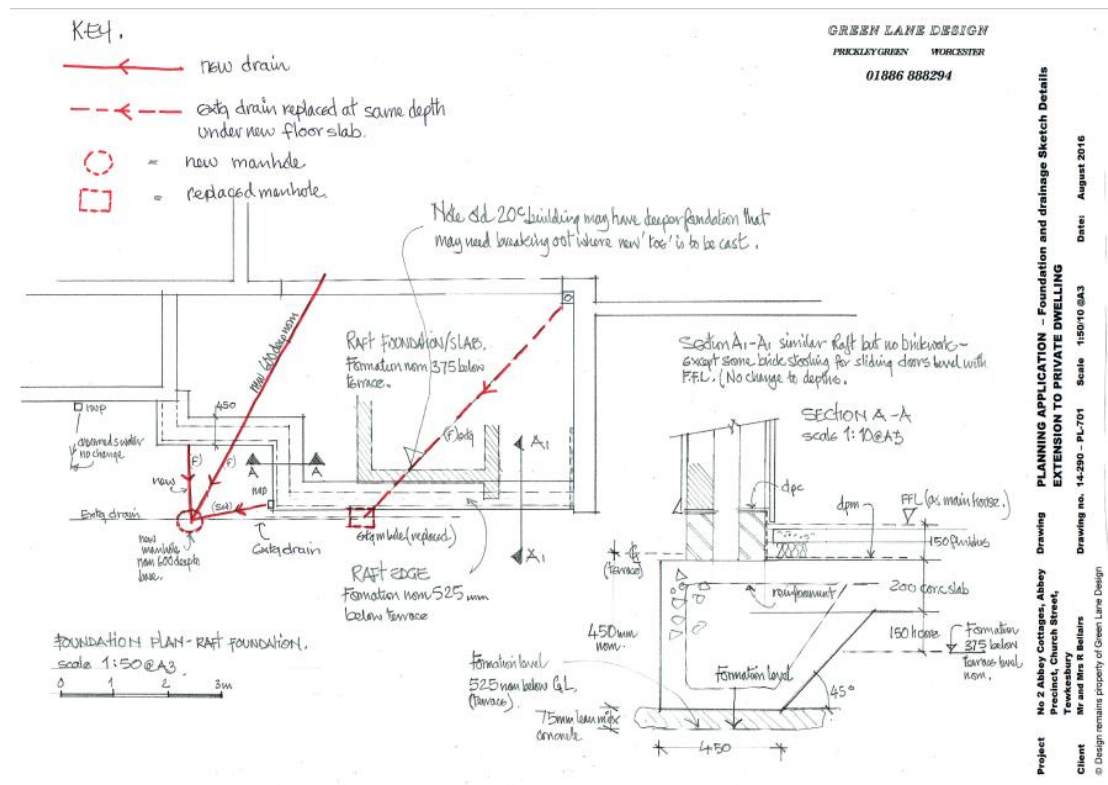 KEY.
new drain
extg drain replaced at same depth
under new floor slab.
= new manhole
= replaced manhole.
GREEN LANE DESIGN
PRICKLEY GREEN WORCESTER
01886 888294
Note old 20c building may have deeper foundation that
may need breaking out where new 'toe' is to be cast.
new 600 deep nom
RAFT FOUNDATION/SLAB.
Formation nom 375 below
terrace.
(F) extg
450
rwp
channel
no change
(F)
(F)
new
A
A
rwp
(SW)
Extg drain
Extg drain
new
manhole
nom 600 deep to
base.
extg mhole (replaced)
A1
A1
RAFT EDGE
Formation nom 525 mm
below terrace
FOUNDATION PLAN - RAFT FOUNDATION.
scale 1:50@A3.
0 1 2 3m
Section A1-A1 similar Raft but no brickwork -
except some brick
for sliding doors level with
F.F.L. (No change to depths.
SECTION A-A
scale 1:10@A3
dpc
dpm
FFL (as main house.)
150
GL
(terrace)
reinforcement
200 conc slab
450mm
nom.
150 hcore
Formation
375 below
terrace level
nom.
Formation level
525 nom below GL,
(terrace).
Formation level
45°
75mm lean mix
concrete
450
Project No 2 Abbey Cottages, Abbey
Precinct, Church Street,
Tewkesbury
Client Mr and Mrs R Bellairs
Drawing PLANNING APPLICATION – Foundation and drainage Sketch Details
EXTENSION TO PRIVATE DWELLING
Drawing no. 14-290 – PL-701 Scale 1:50/10 @A3 Date: August 2016
© Design remains property of Green Lane Design